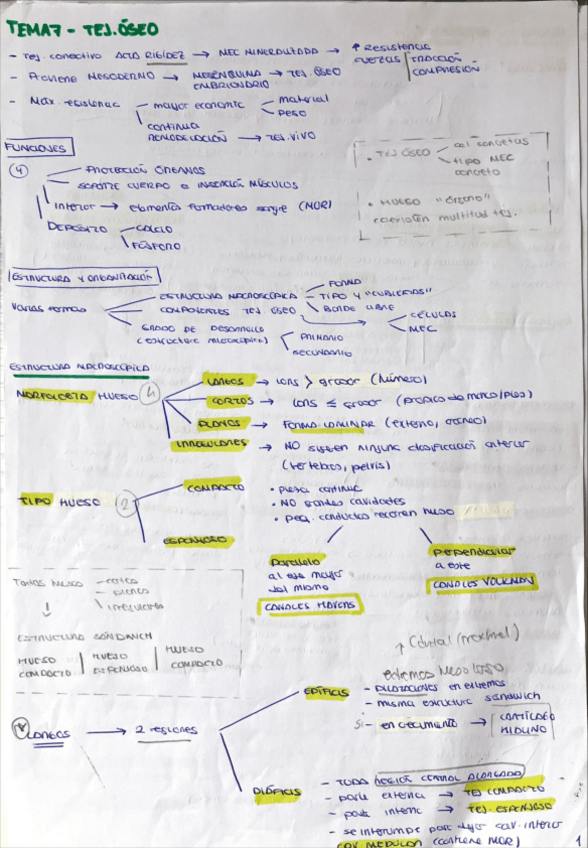 TEMA 7 - TEJ. ÓSEO
- Tej. conectivo ALTA RIGIDEZ → MEC MINERALIZADA → ↑ RESISTENCIA FUERZAS TRACCIÓN COMPRESIÓN
- PROVIENE MESODERMO → MESÉNQUIMA EMBRIONARIO → TEJ. ÓSEO
- Máx. resistencia
mayor economía
material
PESO
continua REMODELACIÓN → TEJ. VIVO
FUNCIONES
(4)
PROTECCIÓN ÓRGANOS
SOPORTE CUERPO e INSERCIÓN MÚSCULOS
Interior → elementos formadores sangre (MOR)
DEPÓSITO
CALCIO
FÓSFORO
• TEJ ÓSEO
cel concretas
TIPO MEC concreto
• HUESO "órgano"
coexisten multitud tej.
ESTRUCTURA Y ORGANIZACIÓN
Varias formas
ESTRUCTURA MACROSCÓPICA
FORMA
TIPO Y "CUBIERTAS"
BORDE LIBRE
COMPONENTES TEJ. ÓSEO
CÉLULAS
MEC
GRADO DE DESARROLLO
(estructura microscópica)
PRIMARIO
SECUNDARIO
ESTRUCTURA MACROSCÓPICA
MORFOLOGÍA HUESO (4)
LARGOS → LONG > grosor (Húmero)
CORTOS → LONG ≤ grosor (propios de manos/pies)
PLANOS → FORMA LAMINAR (esternón, cráneo)
IRREGULARES → NO siguen ninguna clasificación anterior
(vértebras, pelvis)
TIPO HUESO (2)
COMPACTO
• pieza continua
• NO grandes cavidades
• peq. conductos recorren hueso
Paralelo
al eje mayor
del mismo
CANALES HAVERS
perpendicular
a este
CANALES VOLKMANN
ESPONJOSO
Todos hueso
cortos
planos
irregulares
↓
ESTRUCTURA SANDWICH
HUESO COMPACTO | HUESO ESPONJOSO | HUESO COMPACTO
* LARGOS → 2 regiones
↑ (distal/proximal)
extremos hueso largo
EPÍFISIS
- DILATACIONES en extremos
- misma estructura sandwich
Si - en crecimiento → CARTÍLAGO HIALINO
DIÁFISIS
- TODA REGIÓN CENTRAL ALARGADA
- parte externa → TEJ COMPACTO
- parte interna → TEJ. ESPONJOSO
- se interrumpe para dejar cav. interior
CAV. MEDULAR (contiene MOR)
1